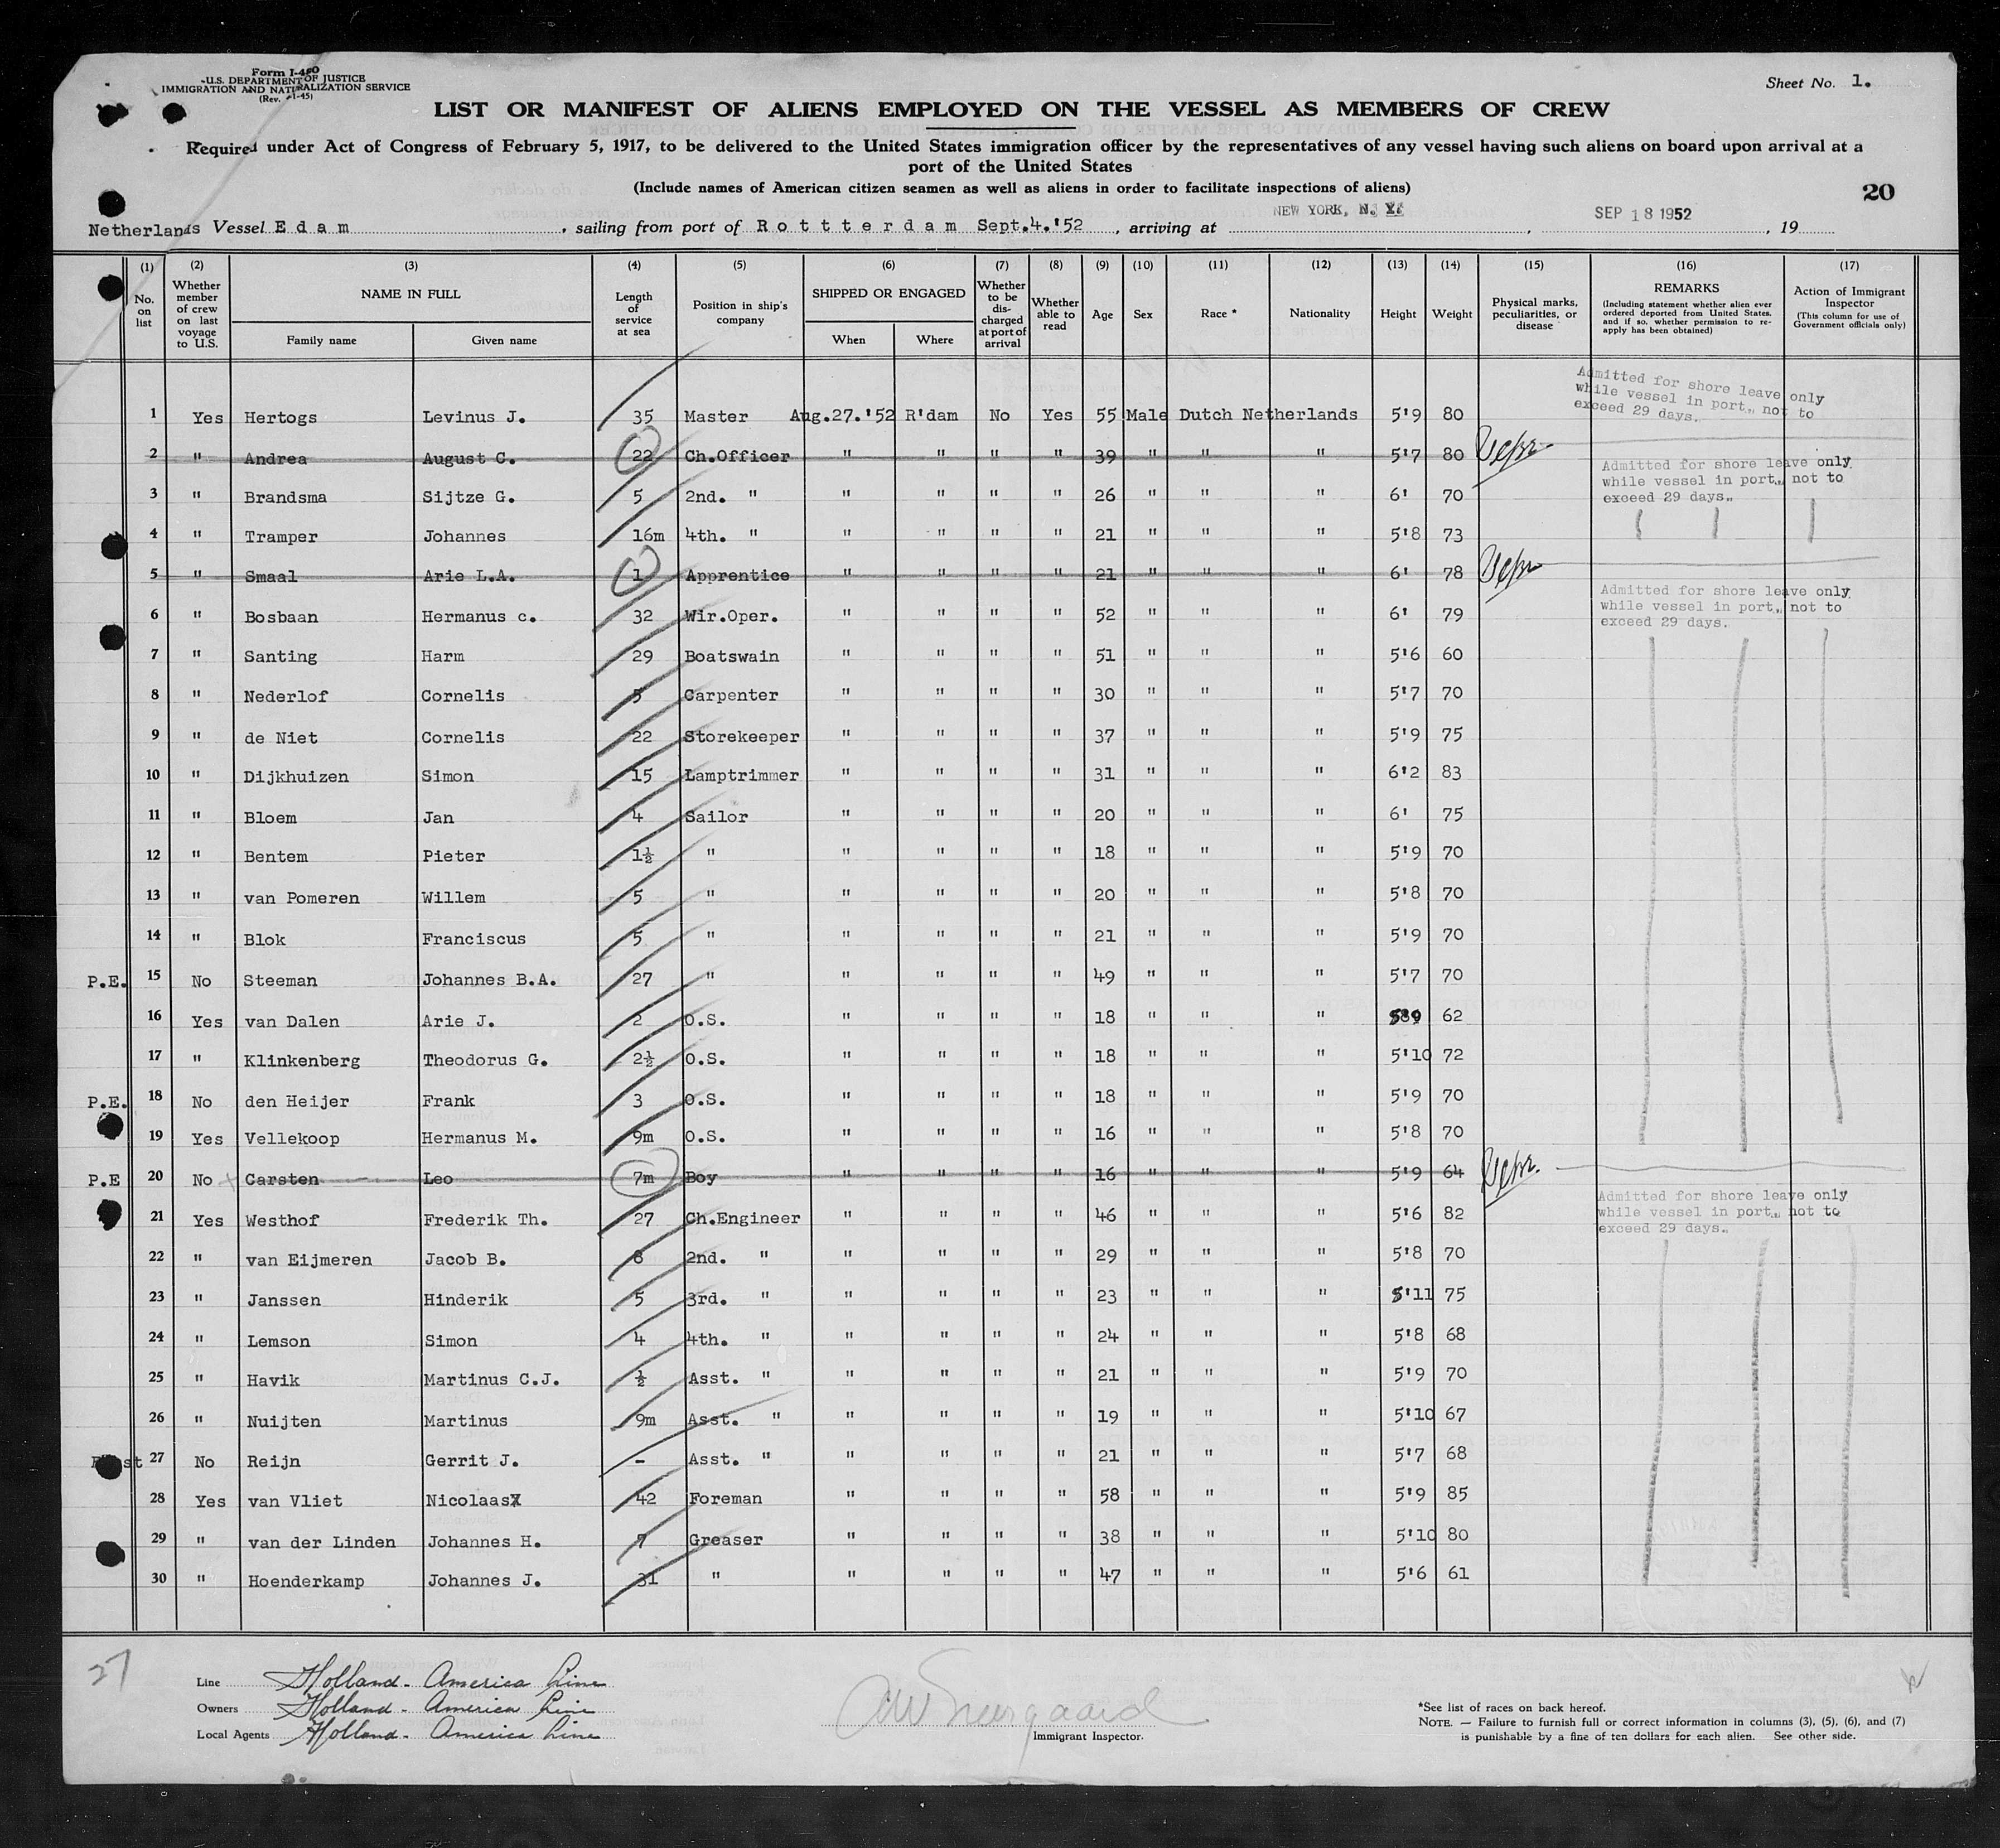 Form I-480
U.S. DEPARTMENT OF JUSTICE
IMMIGRATION AND NATURALIZATION SERVICE
(Rev. -1-45)
Sheet No. 1.
LIST OR MANIFEST OF ALIENS EMPLOYED ON THE VESSEL AS MEMBERS OF CREW
Required under Act of Congress of February 5, 1917, to be delivered to the United States immigration officer by the representatives of any vessel having such aliens on board upon arrival at a
port of the United States
(Include names of American citizen seamen as well as aliens in order to facilitate inspections of aliens)
20
Netherlands Vessel Edam, sailing from port of Rottterdam Sept.4.'52, arriving at NEW YORK, N. Y., SEP 18 1952, 19
(1) (2) (3) (4) (5) (6) (7) (8) (9) (10) (11) (12) (13) (14) (15) (16) (17)
No. on list | Whether member of crew on last voyage to U.S. | NAME IN FULL Family name Given name | Length of service at sea | Position in ship's company | SHIPPED OR ENGAGED When Where | Whether to be discharged at port of arrival | Whether able to read | Age | Sex | Race * | Nationality | Height | Weight | Physical marks, peculiarities, or disease | REMARKS (Including statement whether alien ever ordered deported from United States, and if so, whether permission to re-apply has been obtained) | Action of Immigrant Inspector (This column for use of Government officials only)
Admitted for shore leave only
while vessel in port, not to
exceed 29 days.
1 Yes Hertogs Levinus J. 35 Master Aug.27.'52 R'dam No Yes 55 Male Dutch Netherlands 5'9 80
2 " Andrea August C. 22 Ch.Officer " " " " 39 " " " 5'7 80
Admitted for shore leave only
while vessel in port, not to
exceed 29 days.
3 " Brandsma Sijtze G. 5 2nd. " " " " " 26 " " " 6' 70
4 " Tramper Johannes 16m 4th. " " " " " 21 " " " 5'8 73
5 " Smaal Arie L.A. 1 Apprentice " " " " 21 " " " 6' 78
Admitted for shore leave only
while vessel in port, not to
exceed 29 days.
6 " Bosbaan Hermanus c. 32 Wir.Oper. " " " " 52 " " " 6' 79
7 " Santing Harm 29 Boatswain " " " " 51 " " " 5'6 60
8 " Nederlof Cornelis 5 Carpenter " " " " 30 " " " 5'7 70
9 " de Niet Cornelis 22 Storekeeper " " " " 37 " " " 5'9 75
10 " Dijkhuizen Simon 15 Lamptrimmer " " " " 31 " " " 6'2 83
11 " Bloem Jan 4 Sailor " " " " 20 " " " 6' 75
12 " Bentem Pieter 1½ " " " " " 18 " " " 5'9 70
13 " van Pomeren Willem 5 " " " " " 20 " " " 5'8 70
14 " Blok Franciscus 5 " " " " " 21 " " " 5'9 70
P.E. 15 No Steeman Johannes B.A. 27 " " " " " 49 " " " 5'7 70
16 Yes van Dalen Arie J. 2 O.S. " " " " 18 " " " 5'9 62
17 " Klinkenberg Theodorus G. 2½ O.S. " " " " 18 " " " 5'10 72
P.E. 18 No den Heijer Frank 3 O.S. " " " " 18 " " " 5'9 70
19 Yes Vellekoop Hermanus M. 9m O.S. " " " " 16 " " " 5'8 70
P.E 20 No Carsten Leo 7m Boy " " " " 16 " " " 5'9 64
Admitted for shore leave only
while vessel in port, not to
exceed 29 days.
21 Yes Westhof Frederik Th. 27 Ch.Engineer " " " " 46 " " " 5'6 82
22 " van Eijmeren Jacob B. 8 2nd. " " " " " 29 " " " 5'8 70
23 " Janssen Hinderik 5 3rd. " " " " " 23 " " " 5'11 75
24 " Lemson Simon 4 4th. " " " " " 24 " " " 5'8 68
25 " Havik Martinus C.J. ½ Asst. " " " " " 21 " " " 5'9 70
26 " Nuijten Martinus 9m Asst. " " " " " 19 " " " 5'10 67
27 No Reijn Gerrit J. - Asst. " " " " " 21 " " " 5'7 68
28 Yes van Vliet Nicolaas 42 Foreman " " " " 58 " " " 5'9 85
29 " van der Linden Johannes H. 7 Greaser " " " " 38 " " " 5'10 80
30 " Hoenderkamp Johannes J. 31 " " " " " 47 " " " 5'6 61
27
Line Holland-America Line
Owners Holland-America Line
Local Agents Holland-America Line
Immigrant Inspector.
*See list of races on back hereof.
NOTE. — Failure to furnish full or correct information in columns (3), (5), (6), and (7)
is punishable by a fine of ten dollars for each alien. See other side.